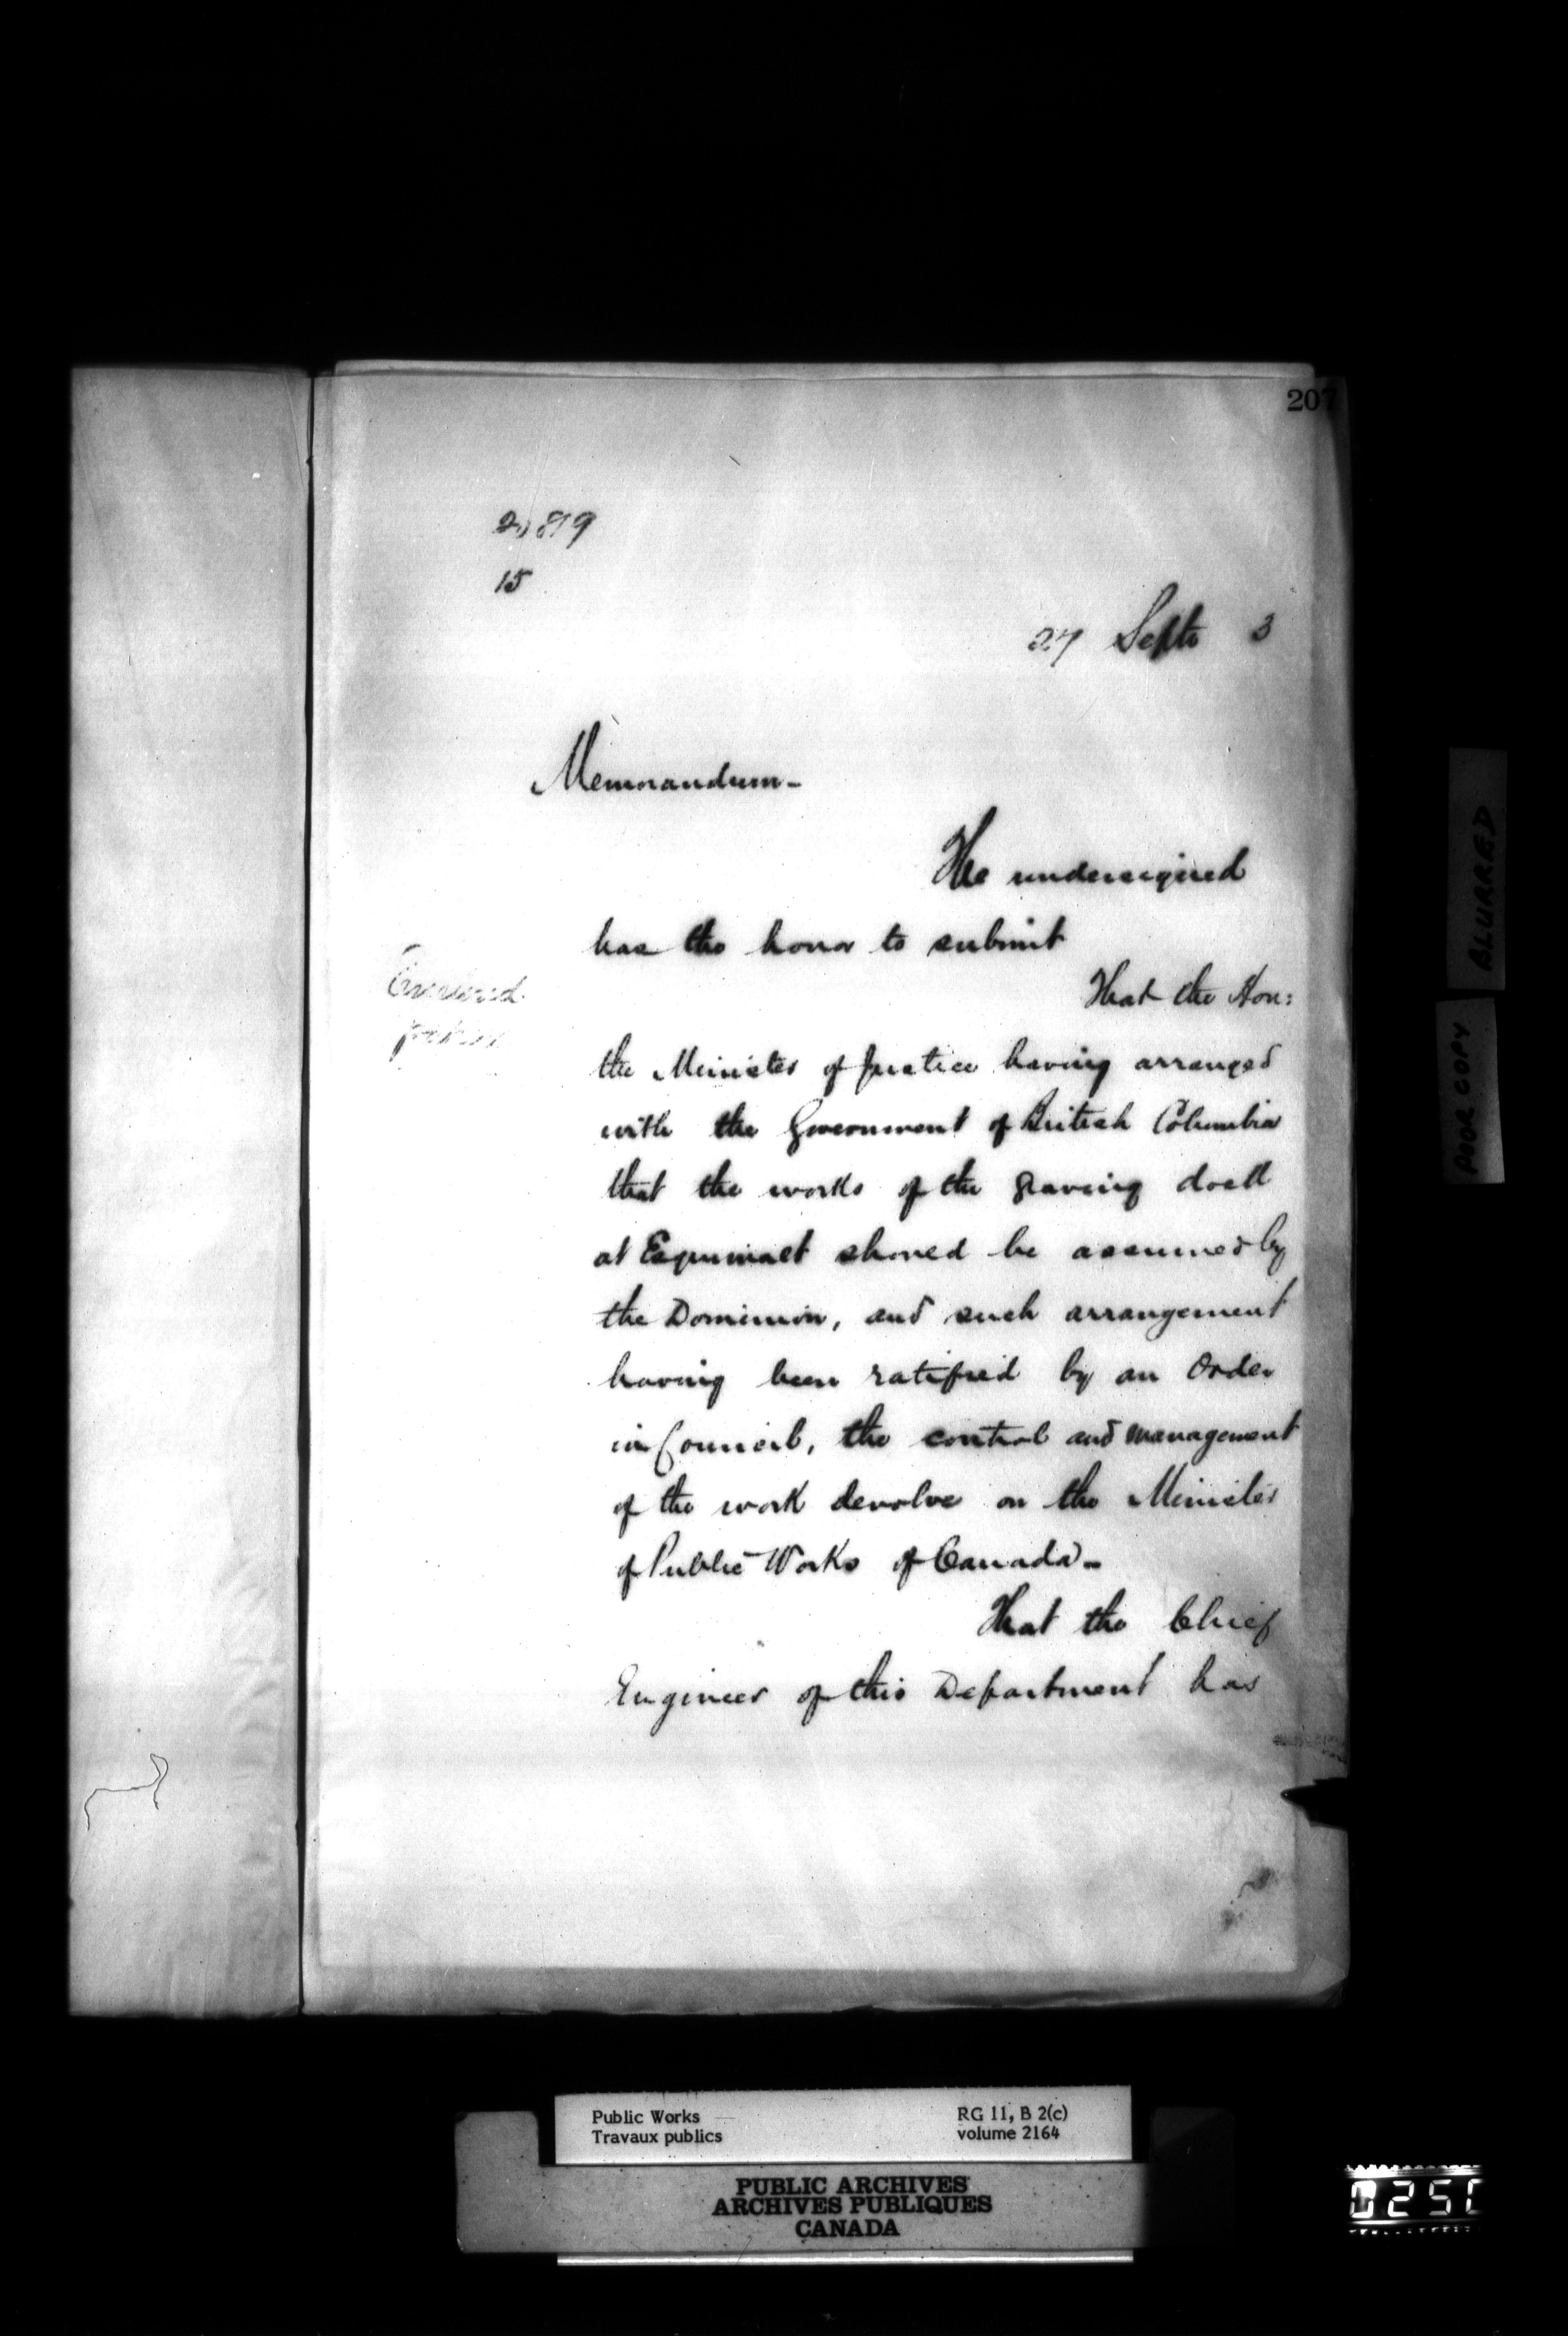 207
15
27 Septr 3
Memorandum-
The undersigned
has the honor to submit
That the Hon:
the Minister of Justice having arranged
with the Government of British Columbia
that the works of the graving dock
at Esquimalt should be assumed by
the Dominion, and such arrangement
having been ratified by an Order
in Council, the control and management
of the work devolve on the Minister
of Public Works of Canada-
That the Chief
Engineer of this Department has
BLURRED
POOR COPY
Public Works
Travaux publics
RG 11, B 2(c)
volume 2164
PUBLIC ARCHIVES
ARCHIVES PUBLIQUES
CANADA